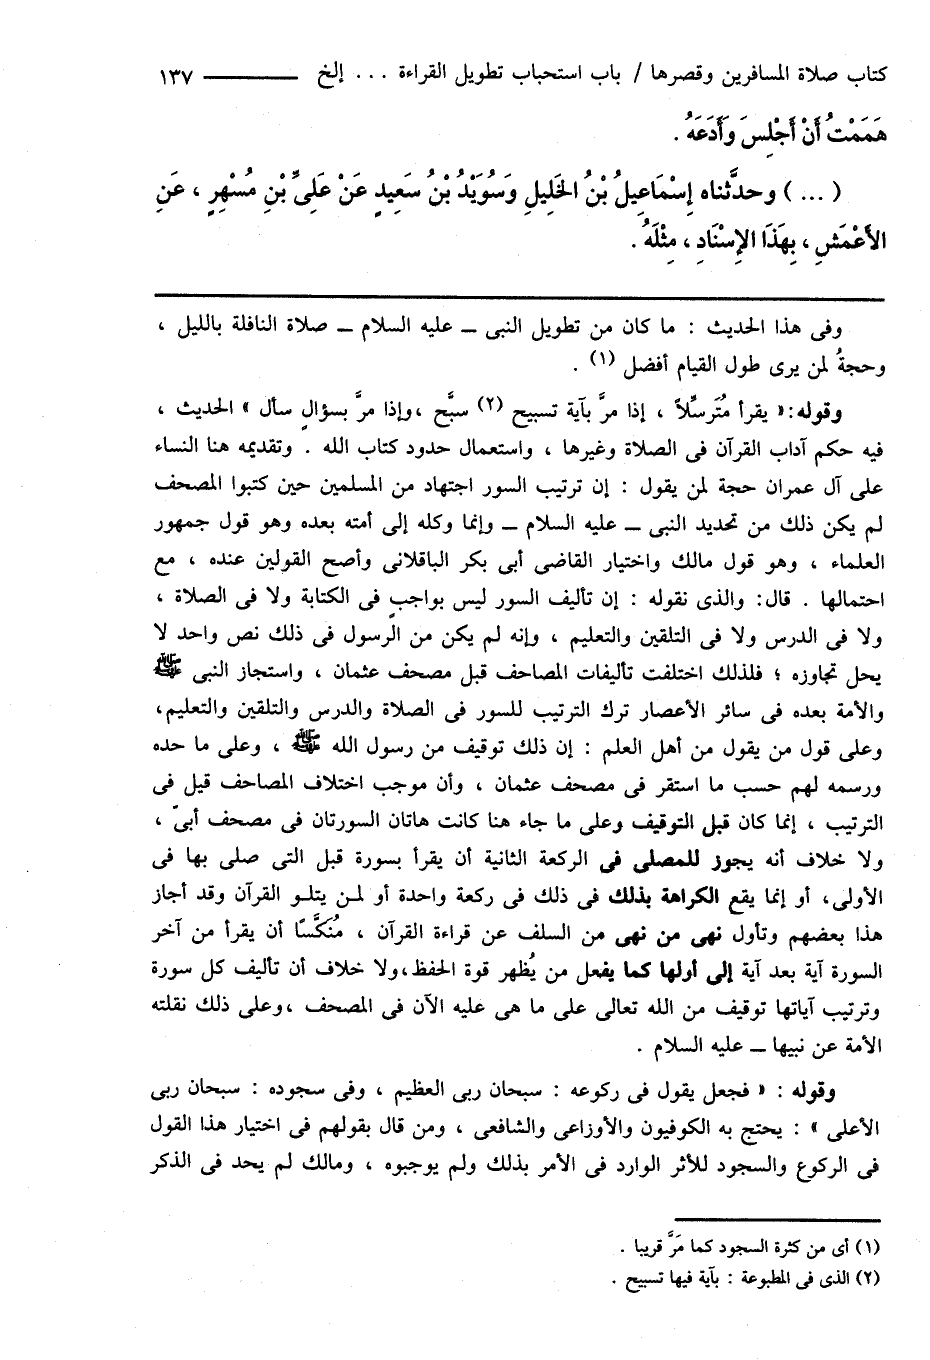 كتاب صلاة المسافرين وقصرها / باب استحباب تطويل القراءة ... إلخ ــــــــ ١٣٧
هَمَمْتُ أَنْ أَجْلِسَ وَأَدَعَهُ .
( ... ) وحدَّثناه إِسْمَاعِيلُ بْنُ الخَلِيلِ وَسُوَيْدُ بْنُ سَعِيدٍ عَنْ عَلِىِّ بْنِ مُسْهِرٍ ، عَنِ
الأَعْمَشِ ، بِهَذَا الإِسْنَادِ ، مِثْلَهُ .
وفى هذا الحديث : ما كان من تطويل النبى ــ عليه السلام ــ صلاة النافلة بالليل ،
وحجةُ لمن يرى طول القيام أفضل (١) .
وقوله:« يقرأ مُتَرسِّلاً ، إذا مرَّ بآية تسبيح (٢) سبَّح ،وإذا مرَّ بسؤالٍ سأل » الحديث ،
فيه حكم آداب القرآن فى الصلاة وغيرها ، واستعمال حدود كتاب الله . وتقديمه هنا النساء
على آل عمران حجة لمن يقول : إن ترتيب السور اجتهاد من المسلمين حين كتبوا المصحف
لم يكن ذلك من تحديد النبى ــ عليه السلام ــ وإنما وكله إلى أمته بعده وهو قول جمهور
العلماء ، وهو قول مالك واختيار القاضى أبى بكر الباقلانى وأصح القولين عنده ، مع
احتمالها . قال: والذى نقوله : إن تأليف السور ليس بواجبٍ فى الكتابة ولا فى الصلاة ،
ولا فى الدرس ولا فى التلقين والتعليم ، وإنه لم يكن من الرسول فى ذلك نص واحد لا
يحل تجاوزه ؛ فلذلك اختلفت تأليفات المصاحف قبل مصحف عثمان ، واستجاز النبى ﷺ
والأمة بعده فى سائر الأعصار ترك الترتيب للسور فى الصلاة والدرس والتلقين والتعليم،
وعلى قول من يقول من أهل العلم : إن ذلك توقيف من رسول الله ﷺ ، وعلى ما حده
ورسمه لهم حسب ما استقر فى مصحف عثمان ، وأن موجب اختلاف المصاحف قيل فى
الترتيب ، إنما كان قبل التوقيف وعلى ما جاء هنا كانت هاتان السورتان فى مصحف أبىّ ،
ولا خلاف أنه يجوز للمصلى فى الركعة الثانية أن يقرأ بسورة قبل التى صلى بها فى
الأولى، أو إنما يقع الكراهة بذلك فى ذلك فى ركعة واحدة أو لمن يتلو القرآن وقد أجاز
هذا بعضهم وتأول نهى من نهى من السلف عن قراءة القرآن ، مُنَكَّسًا أن يقرأ من آخر
السورة آية بعد آية إلى أولها كما يفعل من يُظهر قوة الحفظ،ولا خلاف أن تأليف كل سورة
وترتيب آياتها توقيف من الله تعالى على ما هى عليه الآن فى المصحف ،وعلى ذلك نقلته
الأمة عن نبيها ــ عليه السلام .
وقوله : « فجعل يقول فى ركوعه : سبحان ربى العظيم ، وفى سجوده : سبحان ربى
الأعلى » : يحتج به الكوفيون والأوزاعى والشافعى ، ومن قال بقولهم فى اختيار هذا القول
فى الركوع والسجود للأثر الوارد فى الأمر بذلك ولم يوجبوه ، ومالك لم يحد فى الذكر
(١) أى من كثرة السجود كما مَرَّ قريبا .
(٢) الذى فى المطبوعة : بآية فيها تسبيح .